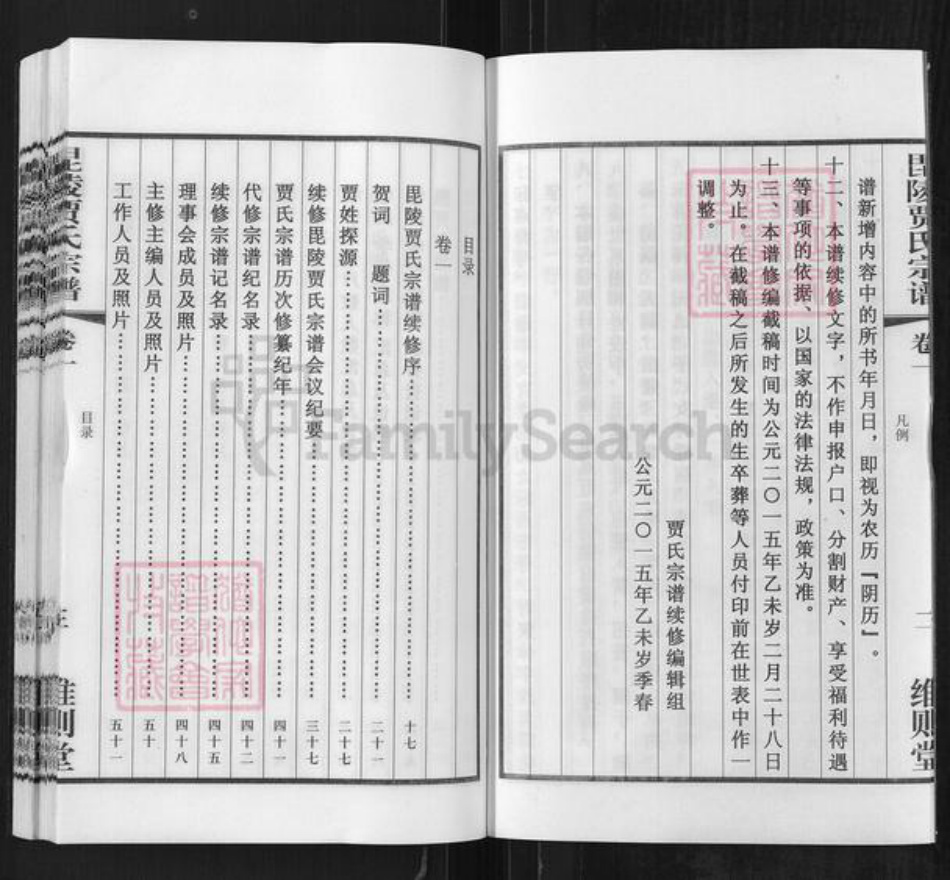 毘陵贾氏宗谱
卷一
凡例
二
维则堂
谱新增内容中的所书年月日，即视为农历『阴历』。
十二、本谱续修文字，不作申报户口、分割财产、享受福利待遇
等事项的依据、以国家的法律法规，政策为准。
十三、本谱修编截稿时间为公元二〇一五年乙未岁二月二十八日
为止。在截稿之后所发生的生卒葬等人员付印前在世表中作一
调整。
贾氏宗谱续修编辑组
公元二〇一五年乙未岁季春
目录
卷一
毘陵贾氏宗谱续修序……十七
贺词 题词……二十一
贾姓探源……二十七
续修毘陵贾氏宗谱会议纪要……三十七
贾氏宗谱历次修纂纪年……四十一
代修宗谱纪名录……四十二
续修宗谱记名录……四十五
理事会成员及照片……四十八
主修主编人员及照片……五十
工作人员及照片……五十一
毘陵贾氏宗谱
卷一
目录
维则堂
FamilySearch